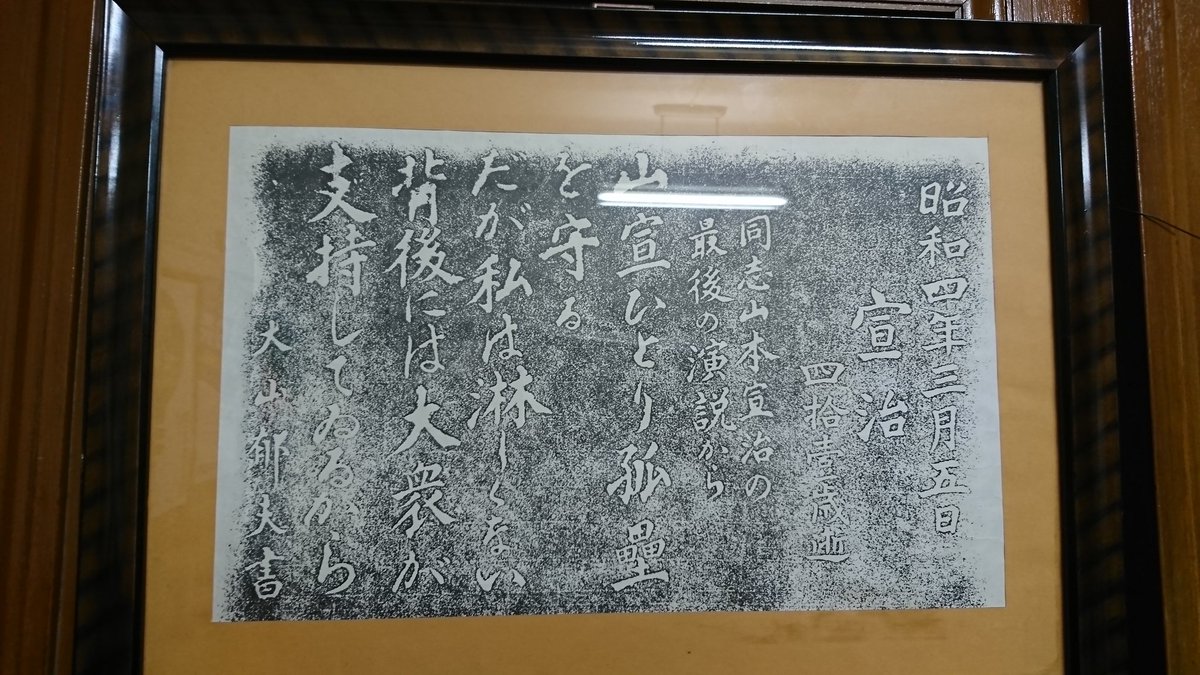 昭和四年三月五日
宣治
四拾壹歳逝
同志山本宣治の
最後の演説から
山宣ひとり孤壘
を守る
だが私は淋しくない
背後には大衆が
支持してゐるから
大山郁夫書